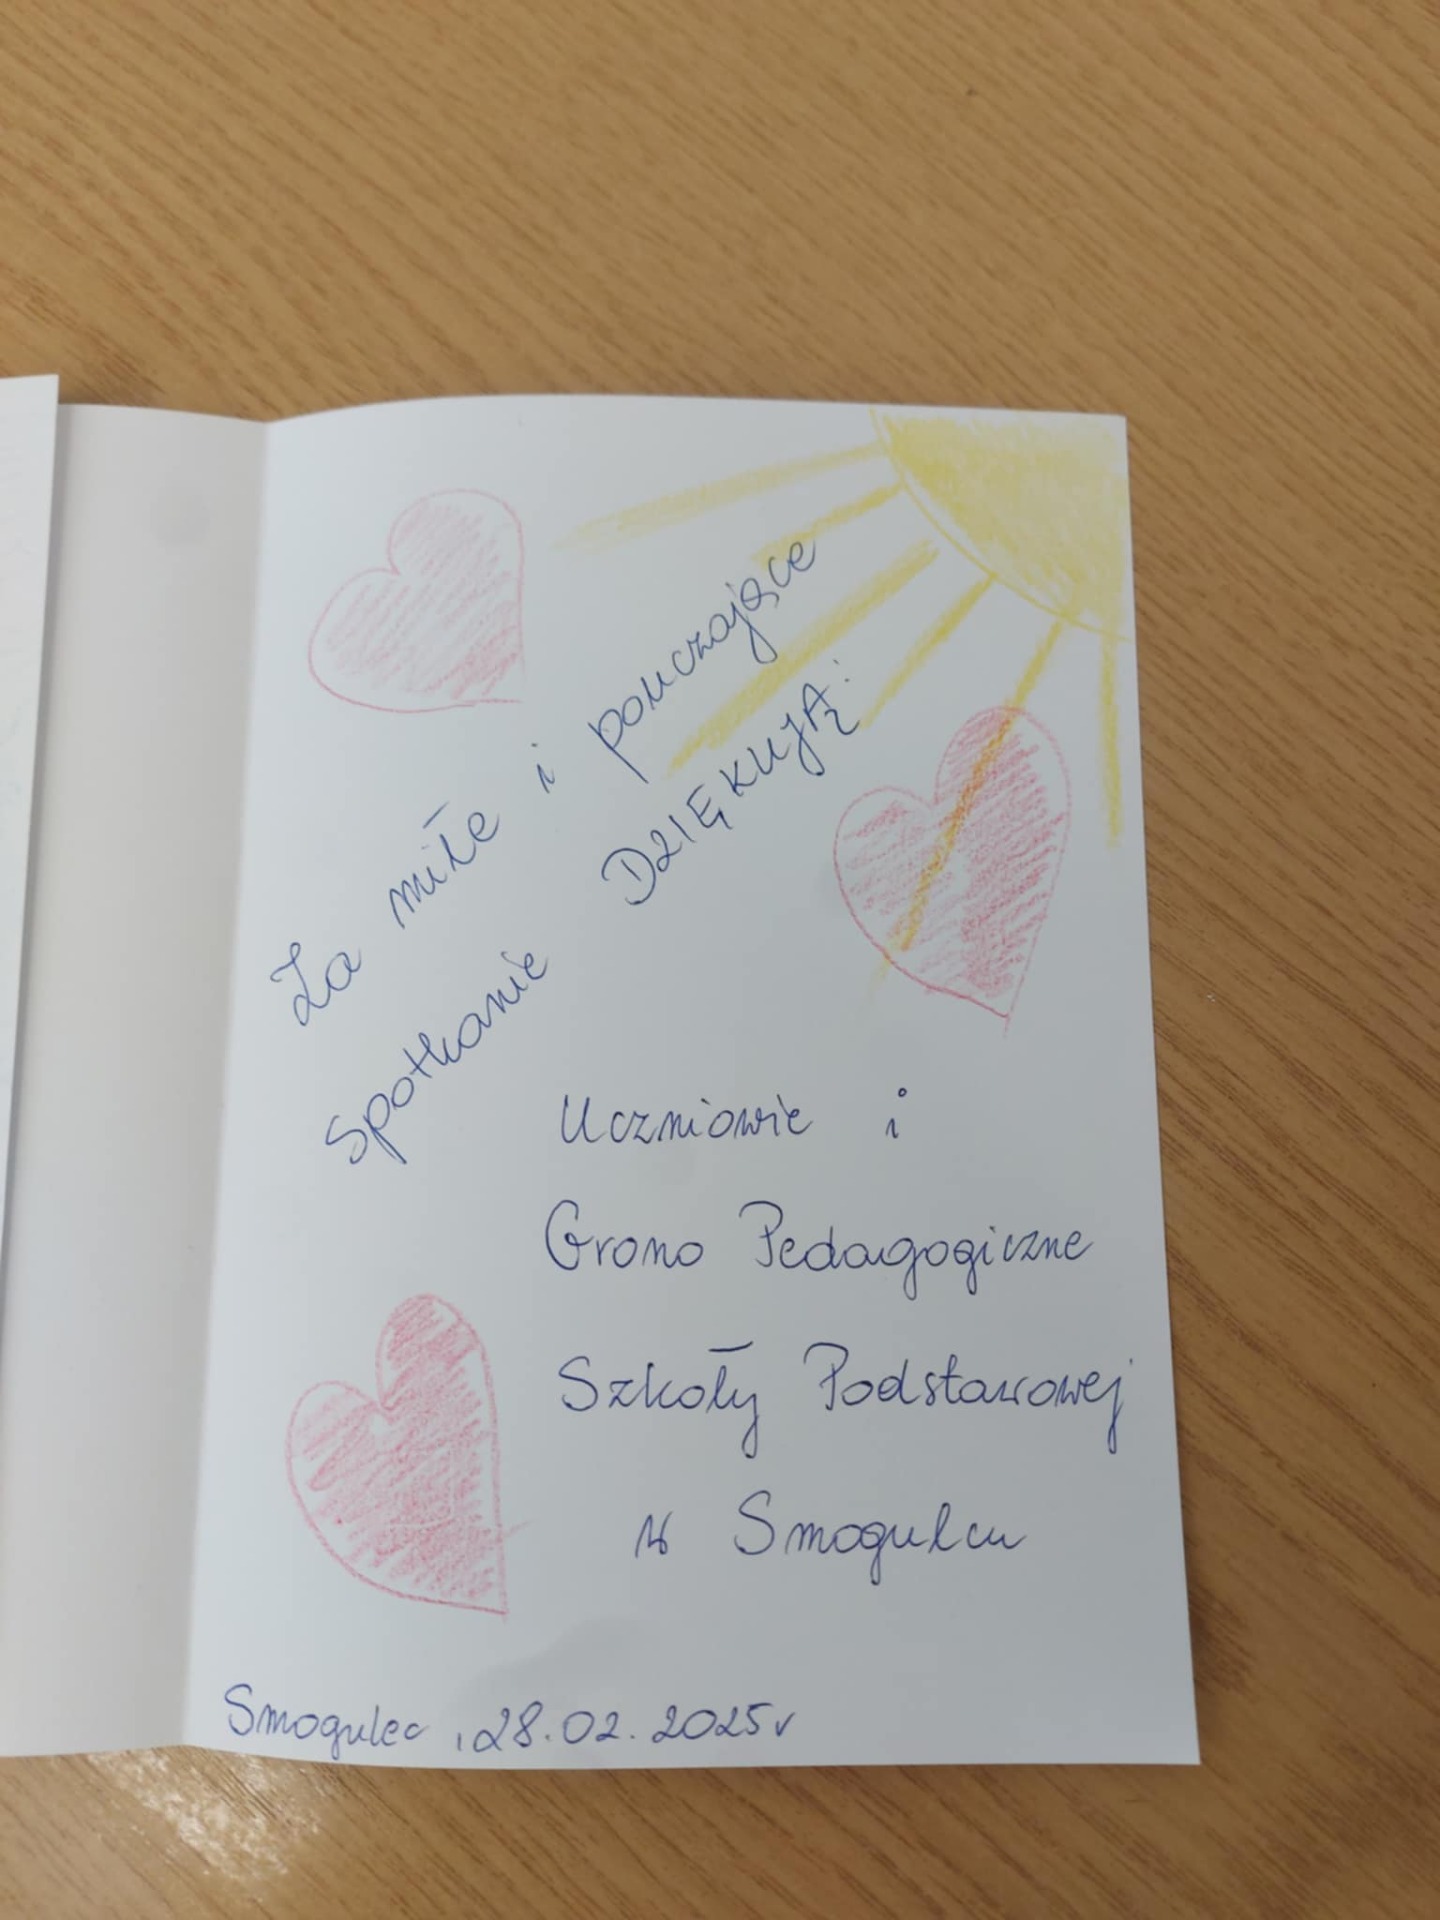 Za miłe i pouczające
Spotkanie DZIĘKUJĄ:
Uczniowie i
Grono Pedagogiczne
Szkoły Podstawowej
w Smogulcu
Smogulec, 28.02.2025r